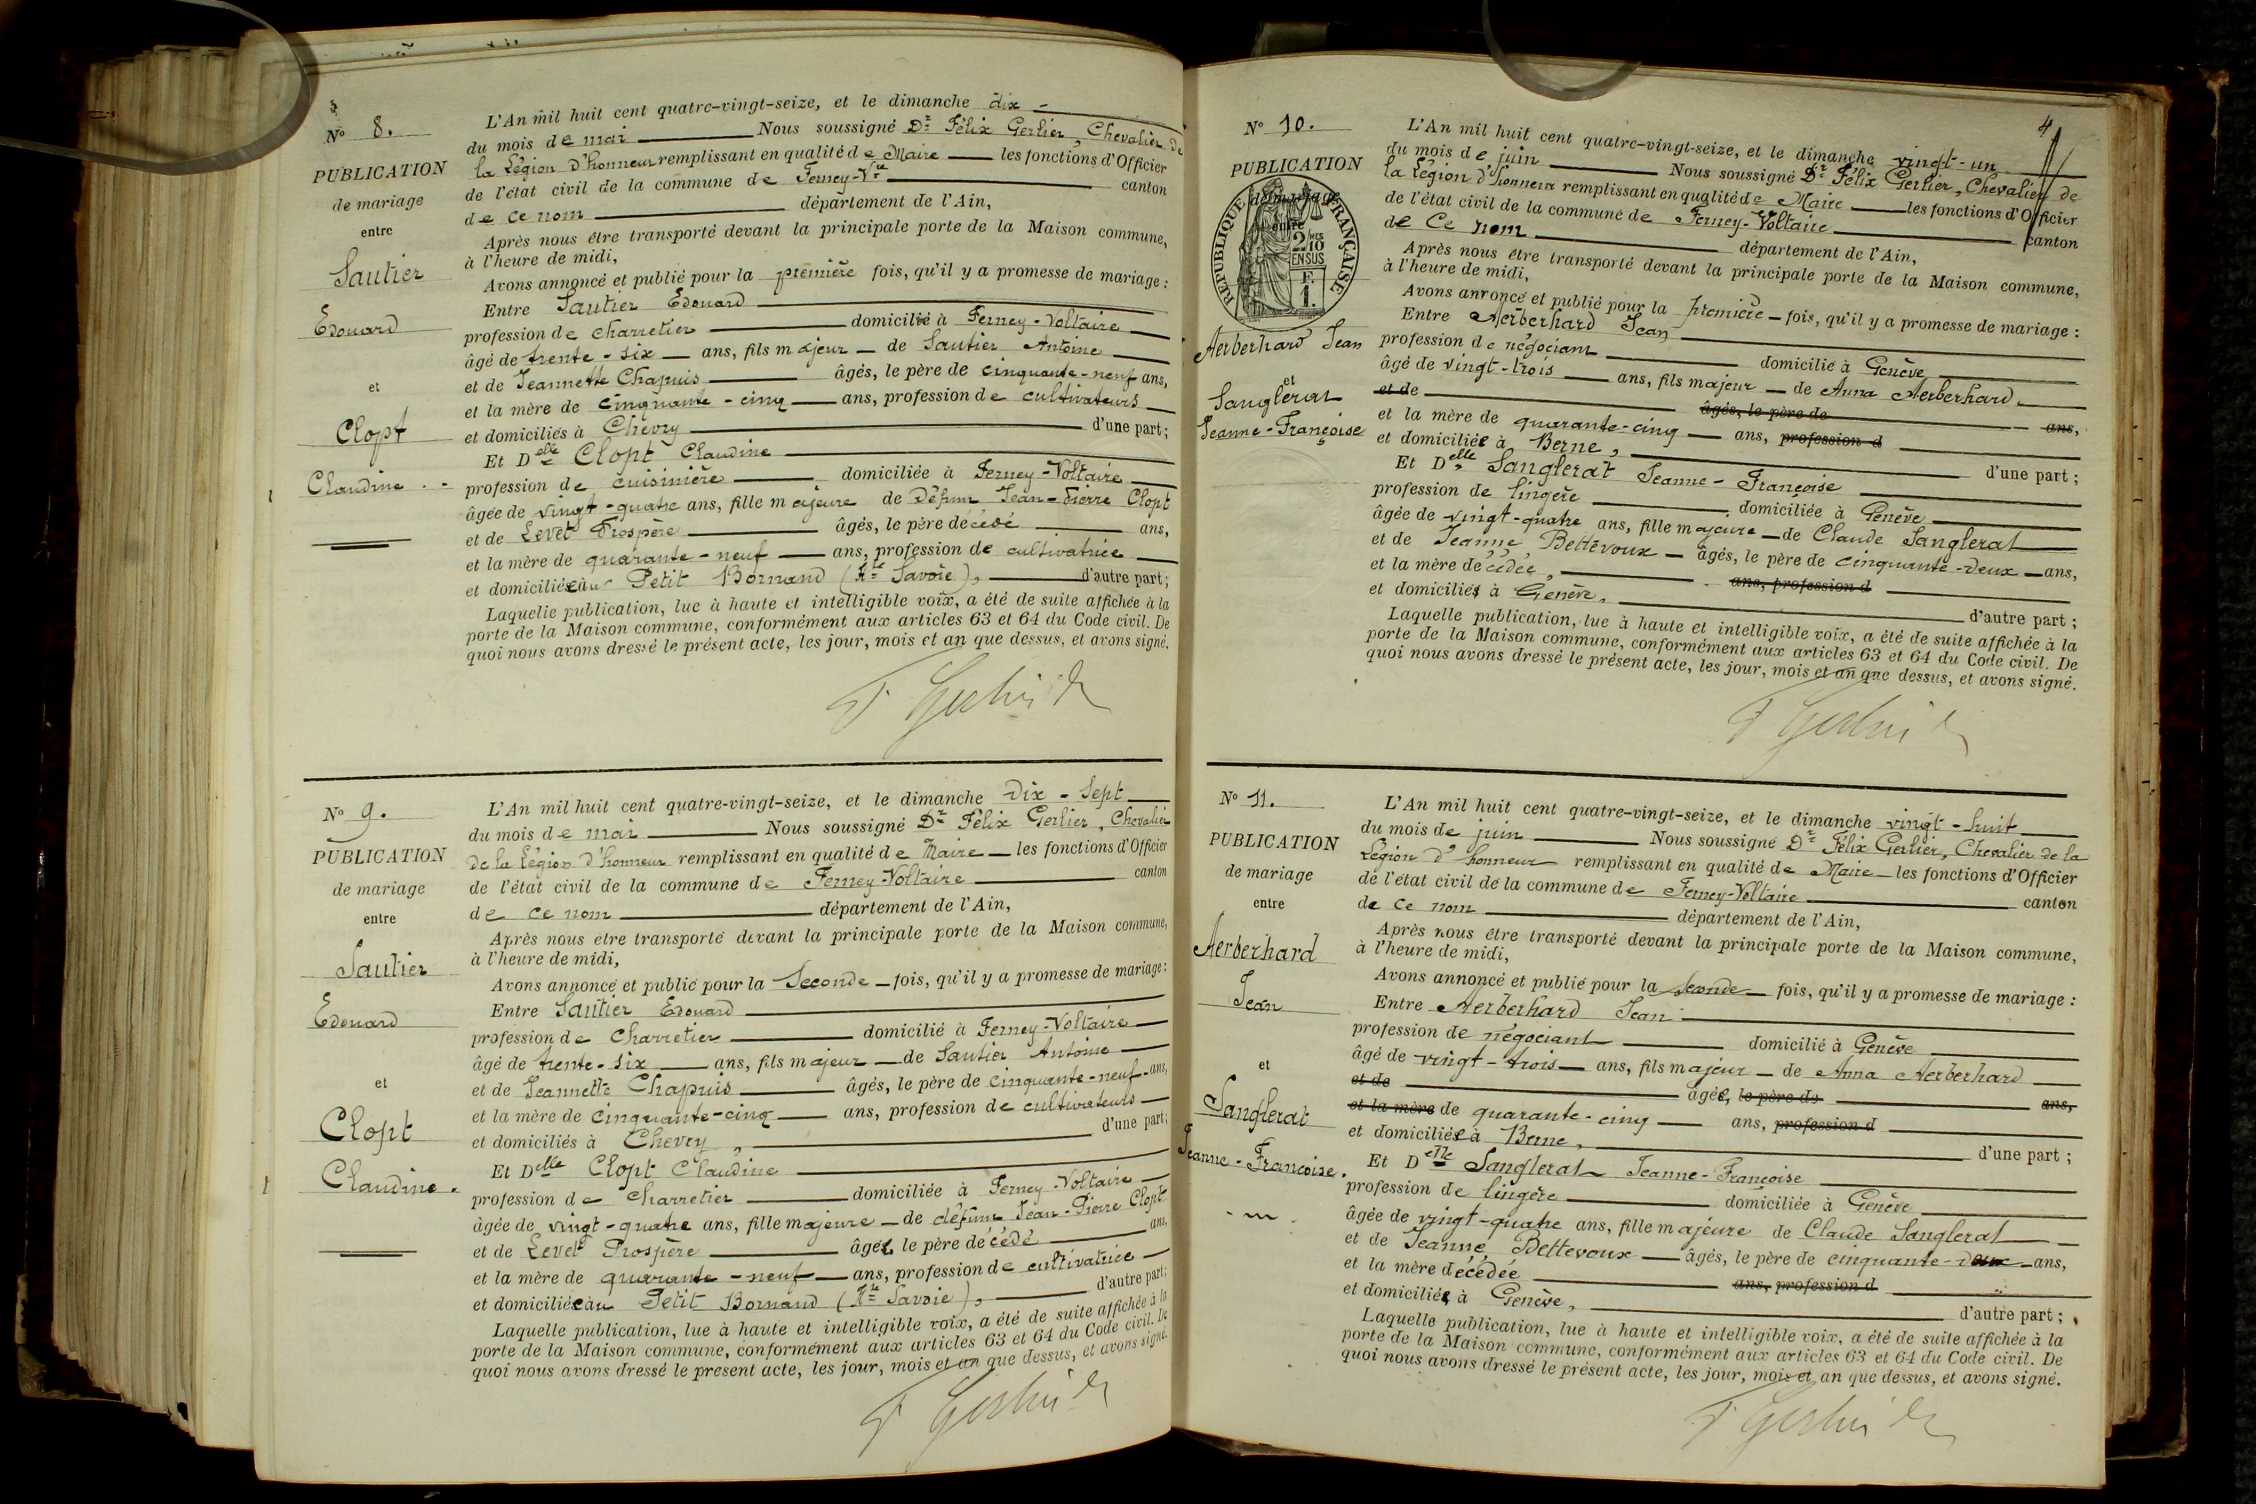 N° 8.
PUBLICATION
de mariage
entre
Sautier
Edouard
et
Clopt
Claudine
L'An mil huit cent quatre-vingt-seize, et le dimanche dix
du mois de mai Nous soussigné Dr Félix Gerlier, Chevalier de
la Légion d'honneur remplissant en qualité de Maire les fonctions d'Officier
de l'état civil de la commune de Ferney-Vre canton
de ce nom département de l'Ain,
Après nous être transporté devant la principale porte de la Maison commune,
à l'heure de midi,
Avons annoncé et publié pour la première fois, qu'il y a promesse de mariage :
Entre Sautier Edouard
profession de charretier domicilié à Ferney-Voltaire
âgé de trente-six ans, fils majeur de Sautier Antoine
et de Jeannette Chapuis âgés, le père de cinquante-neuf ans,
et la mère de cinquante-cinq ans, profession de cultivateurs
et domiciliés à Chevry d'une part;
Et Delle Clopt Claudine
profession de cuisinière domiciliée à Ferney-Voltaire
âgée de vingt-quatre ans, fille majeure de défunt Jean-Pierre Clopt
et de Levet Prospère âgés, le père décédé ans,
et la mère de quarante-neuf ans, profession de cultivatrice
et domiciliée au Petit Bornand (Hte Savoie), d'autre part;
Laquelle publication, lue à haute et intelligible voix, a été de suite affichée à la
porte de la Maison commune, conformément aux articles 63 et 64 du Code civil. De
quoi nous avons dressé le présent acte, les jour, mois et an que dessus, et avons signé.
F Gerlier dr
N° 9.
PUBLICATION
de mariage
entre
Sautier
Edouard
et
Clopt
Claudine.
L'An mil huit cent quatre-vingt-seize, et le dimanche dix-sept
du mois de mai Nous soussigné Dr Félix Gerlier, Chevalier
de la Légion d'honneur remplissant en qualité de Maire les fonctions d'Officier
de l'état civil de la commune de Ferney-Voltaire canton
de ce nom département de l'Ain,
Après nous être transporté devant la principale porte de la Maison commune,
à l'heure de midi,
Avons annoncé et publié pour la Seconde fois, qu'il y a promesse de mariage :
Entre Sautier Edouard
profession de Charretier domicilié à Ferney-Voltaire
âgé de trente-six ans, fils majeur de Sautier Antoine
et de Jeannette Chapuis âgés, le père de cinquante-neuf ans,
et la mère de cinquante-cinq ans, profession de cultivateurs
et domiciliés à Chevry, d'une part;
Et Delle Clopt Claudine
profession de Charretier domiciliée à Ferney-Voltaire
âgée de vingt-quatre ans, fille majeure de défunt Jean-Pierre Clopt
et de Levet Prospère âgés, le père décédé ans,
et la mère de quarante-neuf ans, profession de cultivatrice
et domiciliée au Petit Bornand (Hte Savoie), d'autre part;
Laquelle publication, lue à haute et intelligible voix, a été de suite affichée à la
porte de la Maison commune, conformément aux articles 63 et 64 du Code civil. De
quoi nous avons dressé le présent acte, les jour, mois et an que dessus, et avons signé.
F Gerlier dr
4
N° 10.
PUBLICATION
de mariage
entre
REPUBLIQUE FRANÇAISE
2/10
EN SUS
F.
1.
Aerberhard Jean
et
Sanglerat
Jeanne-Françoise
L'An mil huit cent quatre-vingt-seize, et le dimanche vingt-un
du mois de juin Nous soussigné Dr Félix Gerlier, Chevalier de
la Légion d'honneur remplissant en qualité de Maire les fonctions d'Officier
de l'état civil de la commune de Ferney-Voltaire canton
de Ce nom département de l'Ain,
Après nous être transporté devant la principale porte de la Maison commune,
à l'heure de midi,
Avons annoncé et publié pour la première fois, qu'il y a promesse de mariage :
Entre Aerberhard Jean
profession de négociant domicilié à Genève
âgé de vingt-trois ans, fils majeur de Anna Aerberhard
et de âgés, le père de ans,
et la mère de quarante-cinq ans, profession d
et domiciliée à Berne, d'une part;
Et Delle Sanglerat Jeanne-Françoise
profession de lingère domiciliée à Genève
âgée de vingt-quatre ans, fille majeure de Claude Sanglerat
et de Jeanne Bettevoux âgés, le père de cinquante-deux ans,
et la mère décédée, ans, profession d
et domiciliés à Genève, d'autre part;
Laquelle publication, lue à haute et intelligible voix, a été de suite affichée à la
porte de la Maison commune, conformément aux articles 63 et 64 du Code civil. De
quoi nous avons dressé le présent acte, les jour, mois et an que dessus, et avons signé.
F Gerlier dr
N° 11.
PUBLICATION
de mariage
entre
Aerberhard
Jean
et
Sanglerat
Jeanne-Françoise.
L'An mil huit cent quatre-vingt-seize, et le dimanche vingt-huit
du mois de juin Nous soussigné Dr Félix Gerlier, Chevalier de la
Légion d'honneur remplissant en qualité de Maire les fonctions d'Officier
de l'état civil de la commune de Ferney-Voltaire canton
de ce nom département de l'Ain,
Après nous être transporté devant la principale porte de la Maison commune,
à l'heure de midi,
Avons annoncé et publié pour la seconde fois, qu'il y a promesse de mariage :
Entre Aerberhard Jean
profession de négociant domicilié à Genève
âgé de vingt-trois ans, fils majeur de Anna Aerberhard
et de âgée, le père de ans,
et la mère de quarante-cinq ans, profession d
et domiciliée à Berne, d'une part;
Et Delle Sanglerat Jeanne-Françoise
profession de lingère domiciliée à Genève
âgée de vingt-quatre ans, fille majeure de Claude Sanglerat
et de Jeanne Bettevoux âgés, le père de cinquante-deux ans,
et la mère décédée ans, profession d
et domiciliés à Genève, d'autre part;
Laquelle publication, lue à haute et intelligible voix, a été de suite affichée à la
porte de la Maison commune, conformément aux articles 63 et 64 du Code civil. De
quoi nous avons dressé le présent acte, les jour, mois et an que dessus, et avons signé.
F Gerlier dr